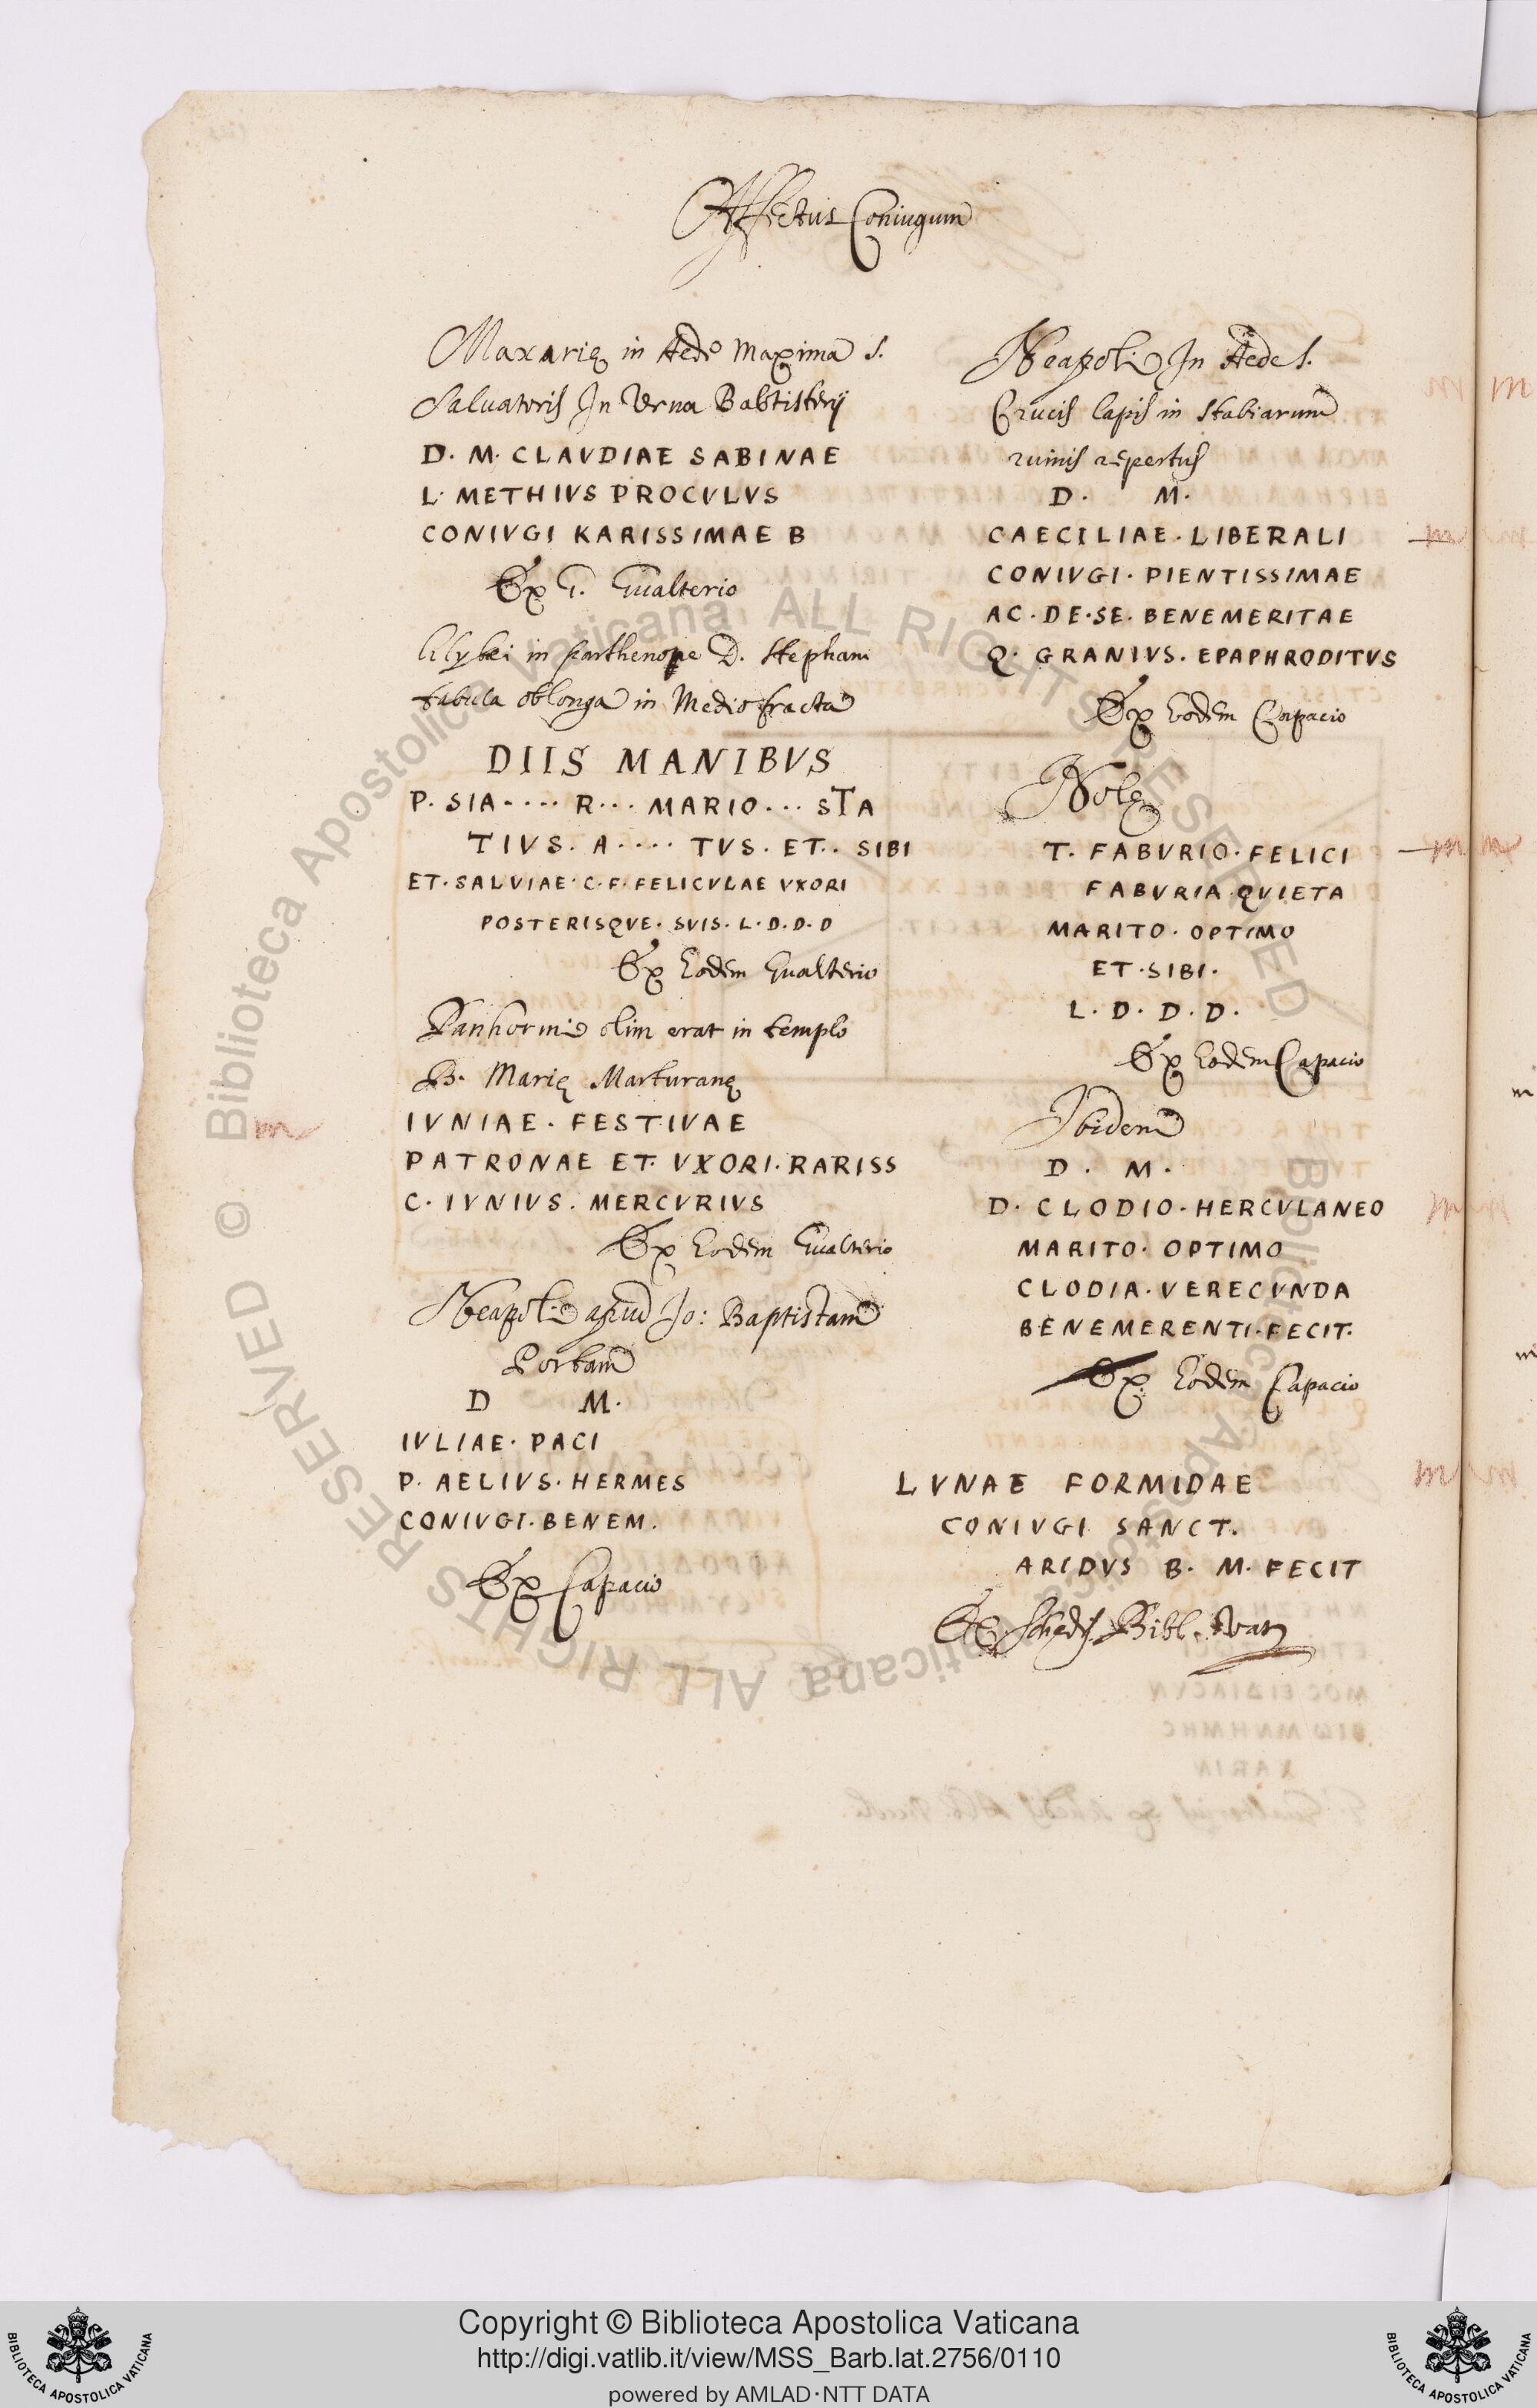 Affectus Coniugum
Maxarię in Aede Maxima S.
Saluatoris In Vrna Babtisterij
D. M. CLAVDIAE SABINAE
L. METHIVS PROCVLVS
CONIVGI KARISSIMAE B
Ex G. Gualterio
Lilybei in Parthenope D. Stephani
tabula oblonga in Medio fracta
DIIS MANIBVS
P. SIA.... R... MARIO... STA
TIVS. A.... TVS. ET.. SIBI
ET. SALVIAE. C. F. FELICVLAE VXORI
POSTERISQVE. SVIS. L. D. D. D
Ex Eodem Gualterio
Panhormi olim erat in templo
B. Marię Marturanę
IVNIAE. FESTIVAE
PATRONAE ET. VXORI. RARISS
C. IVNIVS. MERCVRIVS
Ex Eodem Gualterio
Neapoli apud Io: Baptistam
Portam
D M.
IVLIAE. PACI
P. AELIVS. HERMES
CONIVGI. BENEM.
Ex Capacio
Neapoli In Aede S.
Crucis lapis in Stabiarum
ruinis repertus
D. M.
CAECILIAE. LIBERALI
CONIVGI. PIENTISSIMAE
AC. DE. SE. BENEMERITAE
Q. GRANIVS. EPAPHRODITVS
Ex Eodem Capacio
Nolę
T. FABVRIO. FELICI
FABVRIA QVIETA
MARITO. OPTIMO
ET. SIBI.
L. D. D. D.
Ex Eodem Capacio
Ibidem
D. M.
D. CLODIO. HERCVLANEO
MARITO. OPTIMO
CLODIA. VERECVNDA
BENEMERENTI. FECIT.
Ex Eodem Capacio
LVNAE FORMIDAE
CONIVGI SANCT.
ARIDVS B. M. FECIT
Ex Schedis Bibl. Vat
© Biblioteca Apostolica Vaticana ALL RIGHTS RESERVED
© Biblioteca Apostolica Vaticana ALL RIGHTS RESERVED
Copyright © Biblioteca Apostolica Vaticana
http://digi.vatlib.it/view/MSS_Barb.lat.2756/0110
powered by AMLAD·NTT DATA
BIBLIOTECA APOSTOLICA VATICANA
BIBLIOTECA APOSTOLICA VATICANA